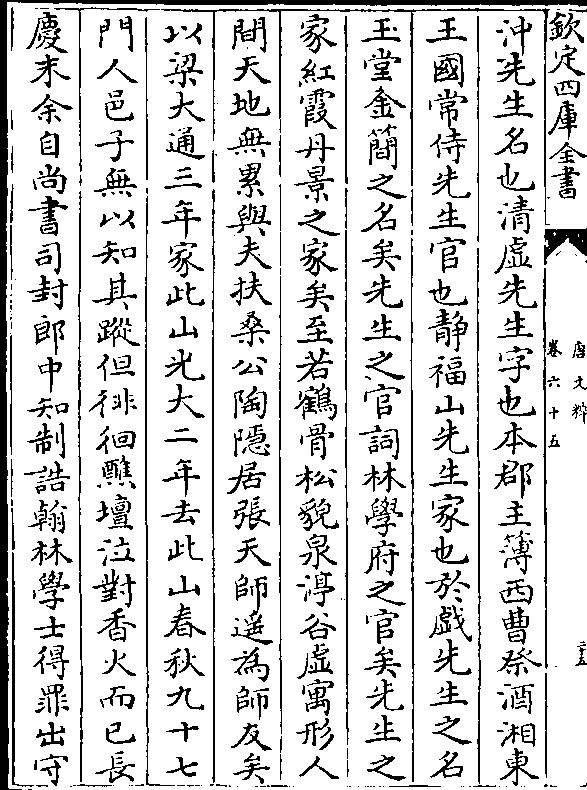 欽定四庫全書
唐文粹
卷六十五
二十五
沖先生名也清虛先生字也本郡主簿西曹祭酒湘東
王國常侍先生官也静福山先生家也於戲先生之名
玉堂金簡之名矣先生之官詞林學府之官矣先生之
家紅霞丹景之家矣至若鶴骨松貌泉渟谷虛寓形人
間天地無累與夫扶桑公陶隱居張天師遥為師友矣
以梁大通三年家此山光大二年去此山春秋九十七
門人邑子無以知其蹤但徘徊醮壇泣對香火而已長
慶末余自尚書司封郎中知制誥翰林學士得罪出守